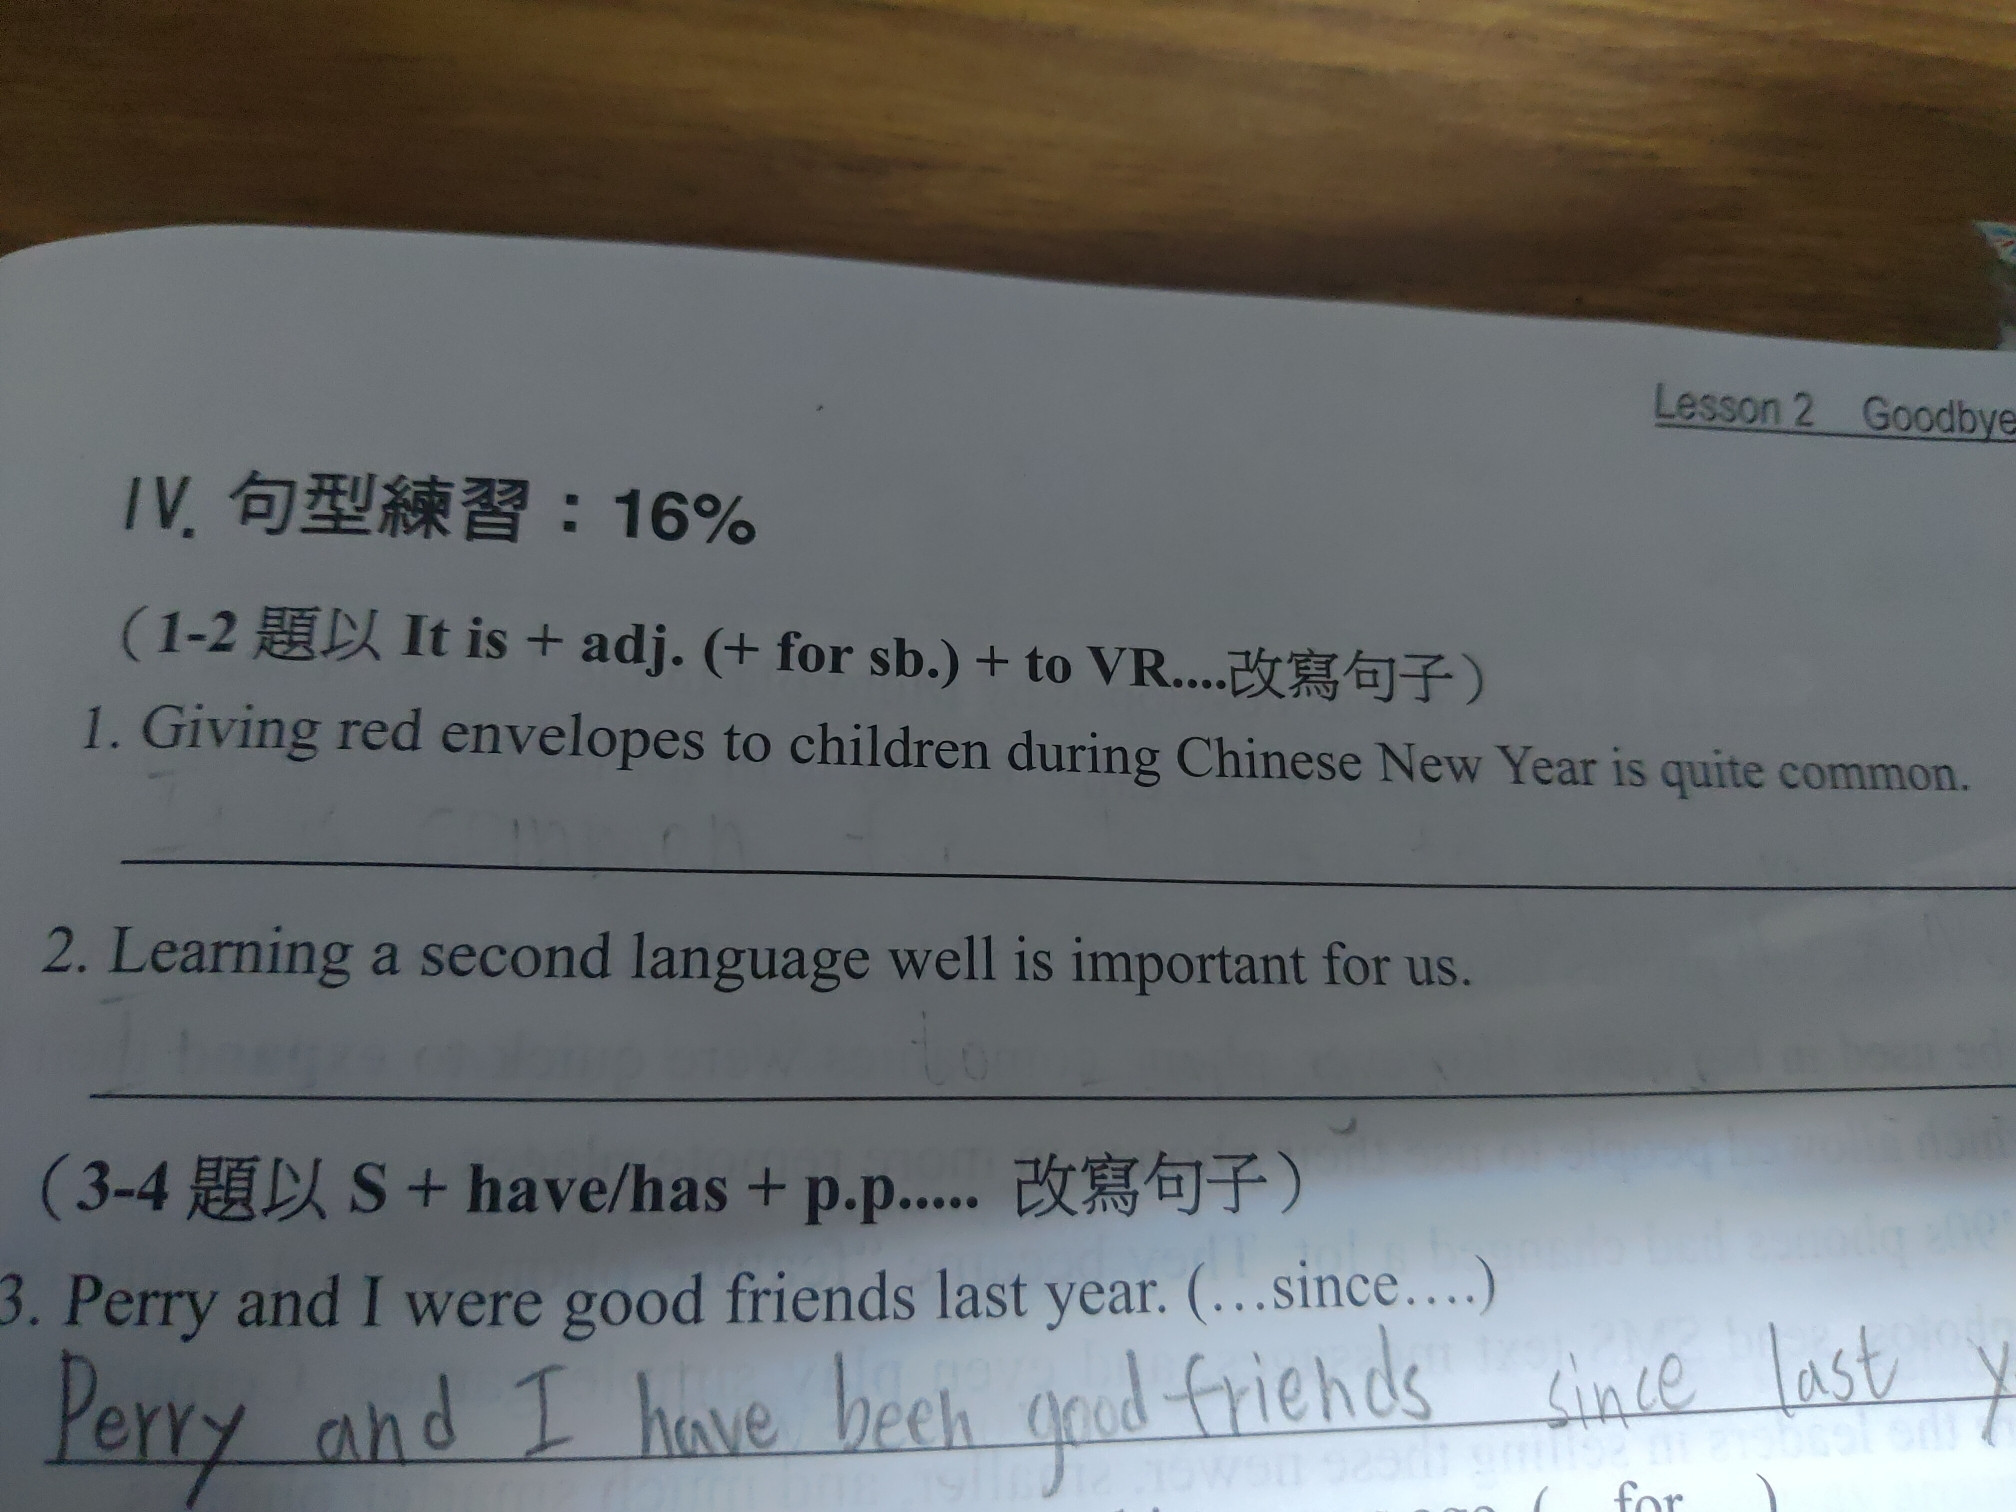 Lesson 2 Goodbye
IV. 句型練習：16%
（1-2 題以 It is + adj. (+ for sb.) + to VR....改寫句子）
1. Giving red envelopes to children during Chinese New Year is quite common.
2. Learning a second language well is important for us.
（3-4 題以 S + have/has + p.p..... 改寫句子）
3. Perry and I were good friends last year. (…since….)
Perry and I have been good friends since last
for )